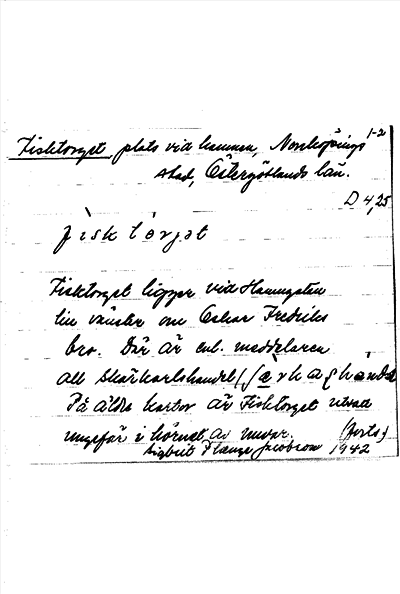 Fisktorget, plats vid hamnen, Norrköpings 1-2
stad, Östergötlands län.
D 4,25
fisk tòrjət
Fisktorget ligger vid Hamngatan
till vänster om Oskar Fredriks
bro. Där är enl. meddelaren
all skärkarlshandel
På äldre kartor är Fisktorget utsatt
ungefär i hörnet av nuvar. (forts.)
Sigbrit Plænge Jacobson 1942